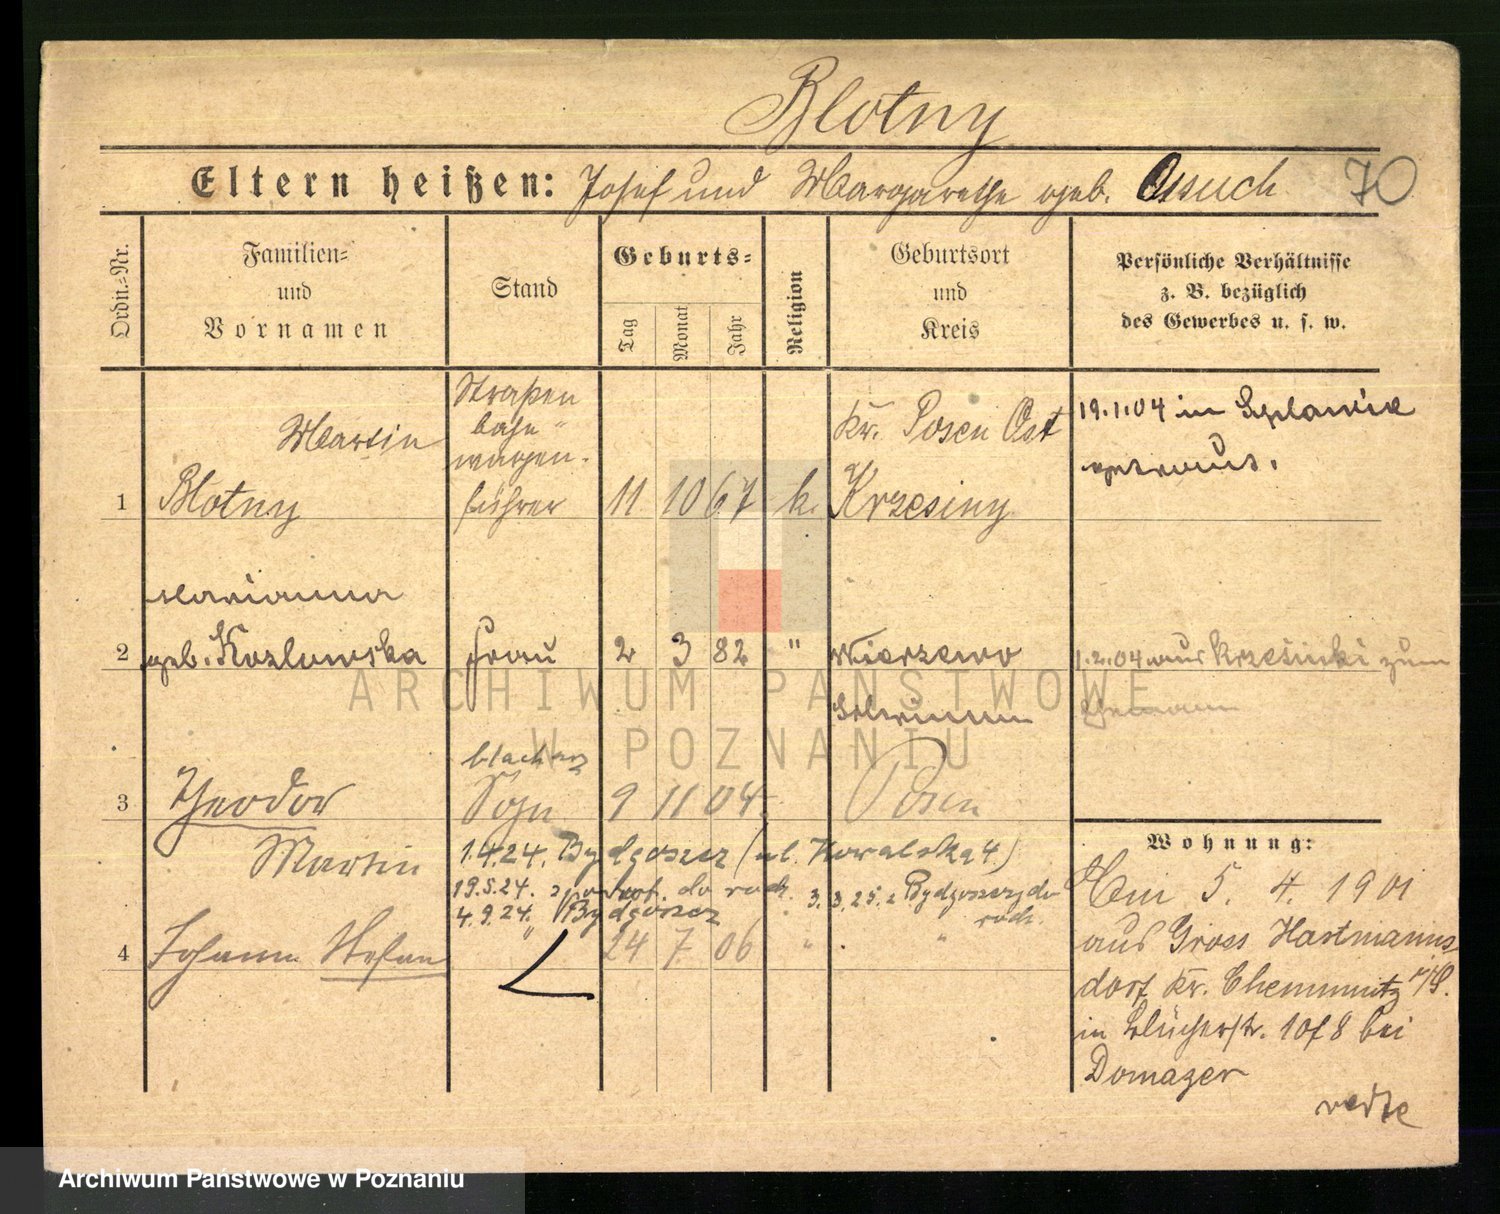 Blotny
Eltern heißen: Josef und Margarethe geb. Osuch 70
Ordn.-Nr.
Familien-
und
Vornamen
Stand
Geburts-
Tag
Monat
Jahr
Religion
Geburtsort
und
Kreis
Persönliche Verhältnisse
z. B. bezüglich
des Gewerbes u. s. w.
Martin
1 Blotny
Straßen
bahn-
wagen-
führer
11 10 67 k.
Kr. Posen Ost
Krzesiny
19.1.04 in
getraut.
Marianna
2 geb. Kozlowska Frau 2 3 82 " Wierzewo
Schrimm
1.2.04 aus Krzesinki zum
Ehemann
blacharz
3 Theodor Sohn 9 11 04. Posen
Martin
1.4.24. Bydgoszcz (ul. Kowalska 4)
19.5.24. do rodz. 3.3.25. z Bydgoszczy do
4.9.24. Bydgoszcz rodz.
4 Johann Stefan " 24 7 06 " "
Wohnung:
Am 5. 4. 1901
aus Gross Hartmanns
dorf Kr. Chemnitz i/S.
in Blücherstr. 10 f 8 bei
Domager
ARCHIWUM PAŃSTWOWE
W POZNANIU
Archiwum Państwowe w Poznaniu